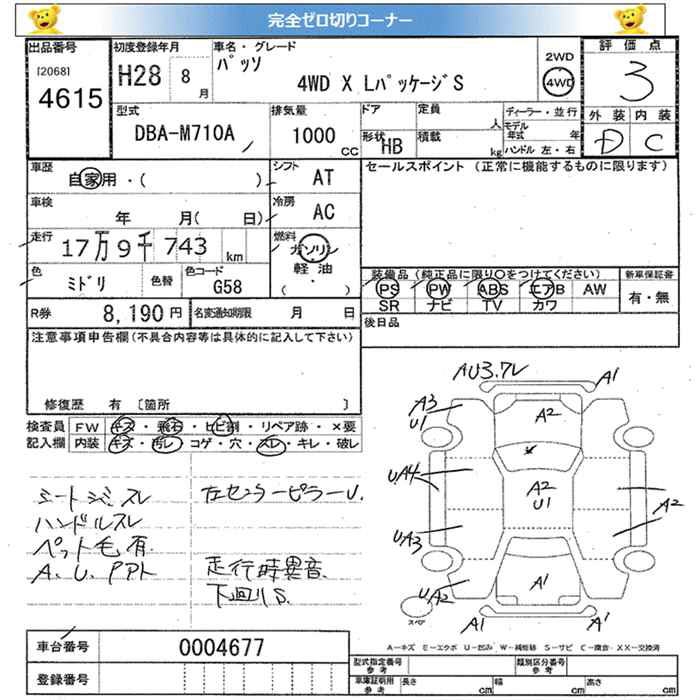 完全ゼロ切りコーナー
出品番号
[2068]
4615
初度登録年月
H28 8月
車名・グレード
パッソ
4WD X LパッケージS
2WD
4WD
評価点
3
外装 内装
D C
型式
DBA-M710A
排気量
1000 CC
ドア
定員
人
形状 HB
積載
kg
ディーラー・並行
モデル年式 年
ハンドル 左・右
車歴
自家用・( )
シフト
AT
車検
年 月( 日)
冷房
AC
走行
17万9千743 km
燃料
ガソリン
軽油
( ・ )
色
ミドリ
色替
色コード
G58
R券
8,190円
名変通知期限 月 日
セールスポイント (正常に機能するものに限ります)
装備品 (純正品に限り○をつけてください)
新車保証書
PS PW ABS エアB AW
有・無
SR ナビ TV カワ
後日品
注意事項申告欄(不具合内容等は具体的に記入して下さい)
修復歴 有 〔箇所 〕
検査員記入欄
FW キズ・飛石・ヒビ割・リペア跡・×要
内装 キズ・汚レ・コゲ・穴・スレ・キレ・破レ
シートシミ、スレ
ハンドルスレ
ペット毛有
A、U、PPト
左センターピラーU.
走行時異音.
下回りS.
AU3.アレ
A1
A3
U1
A2
UA4
A2
U1
A2
UA3
UA2
A1
A1
A1
スペア
A-キズ E-エクボ U-凹み W-補修跡 S-サビ C-腐食 XX-交換済
車台番号
0004677
登録番号
型式指定番号 参考
類別区分番号 参考
車庫証明用 参考
長さ cm
幅 cm
高さ cm